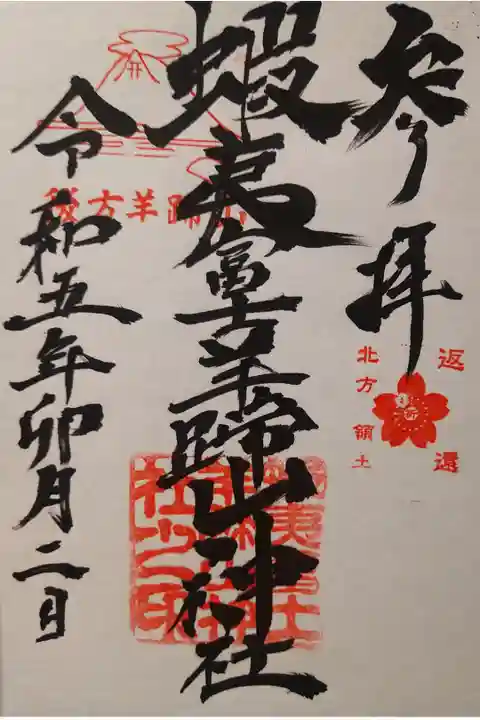 参拝
返還
北方領土
蝦夷富士羊蹄山神社
後方羊蹄山
令和五年卯月二日